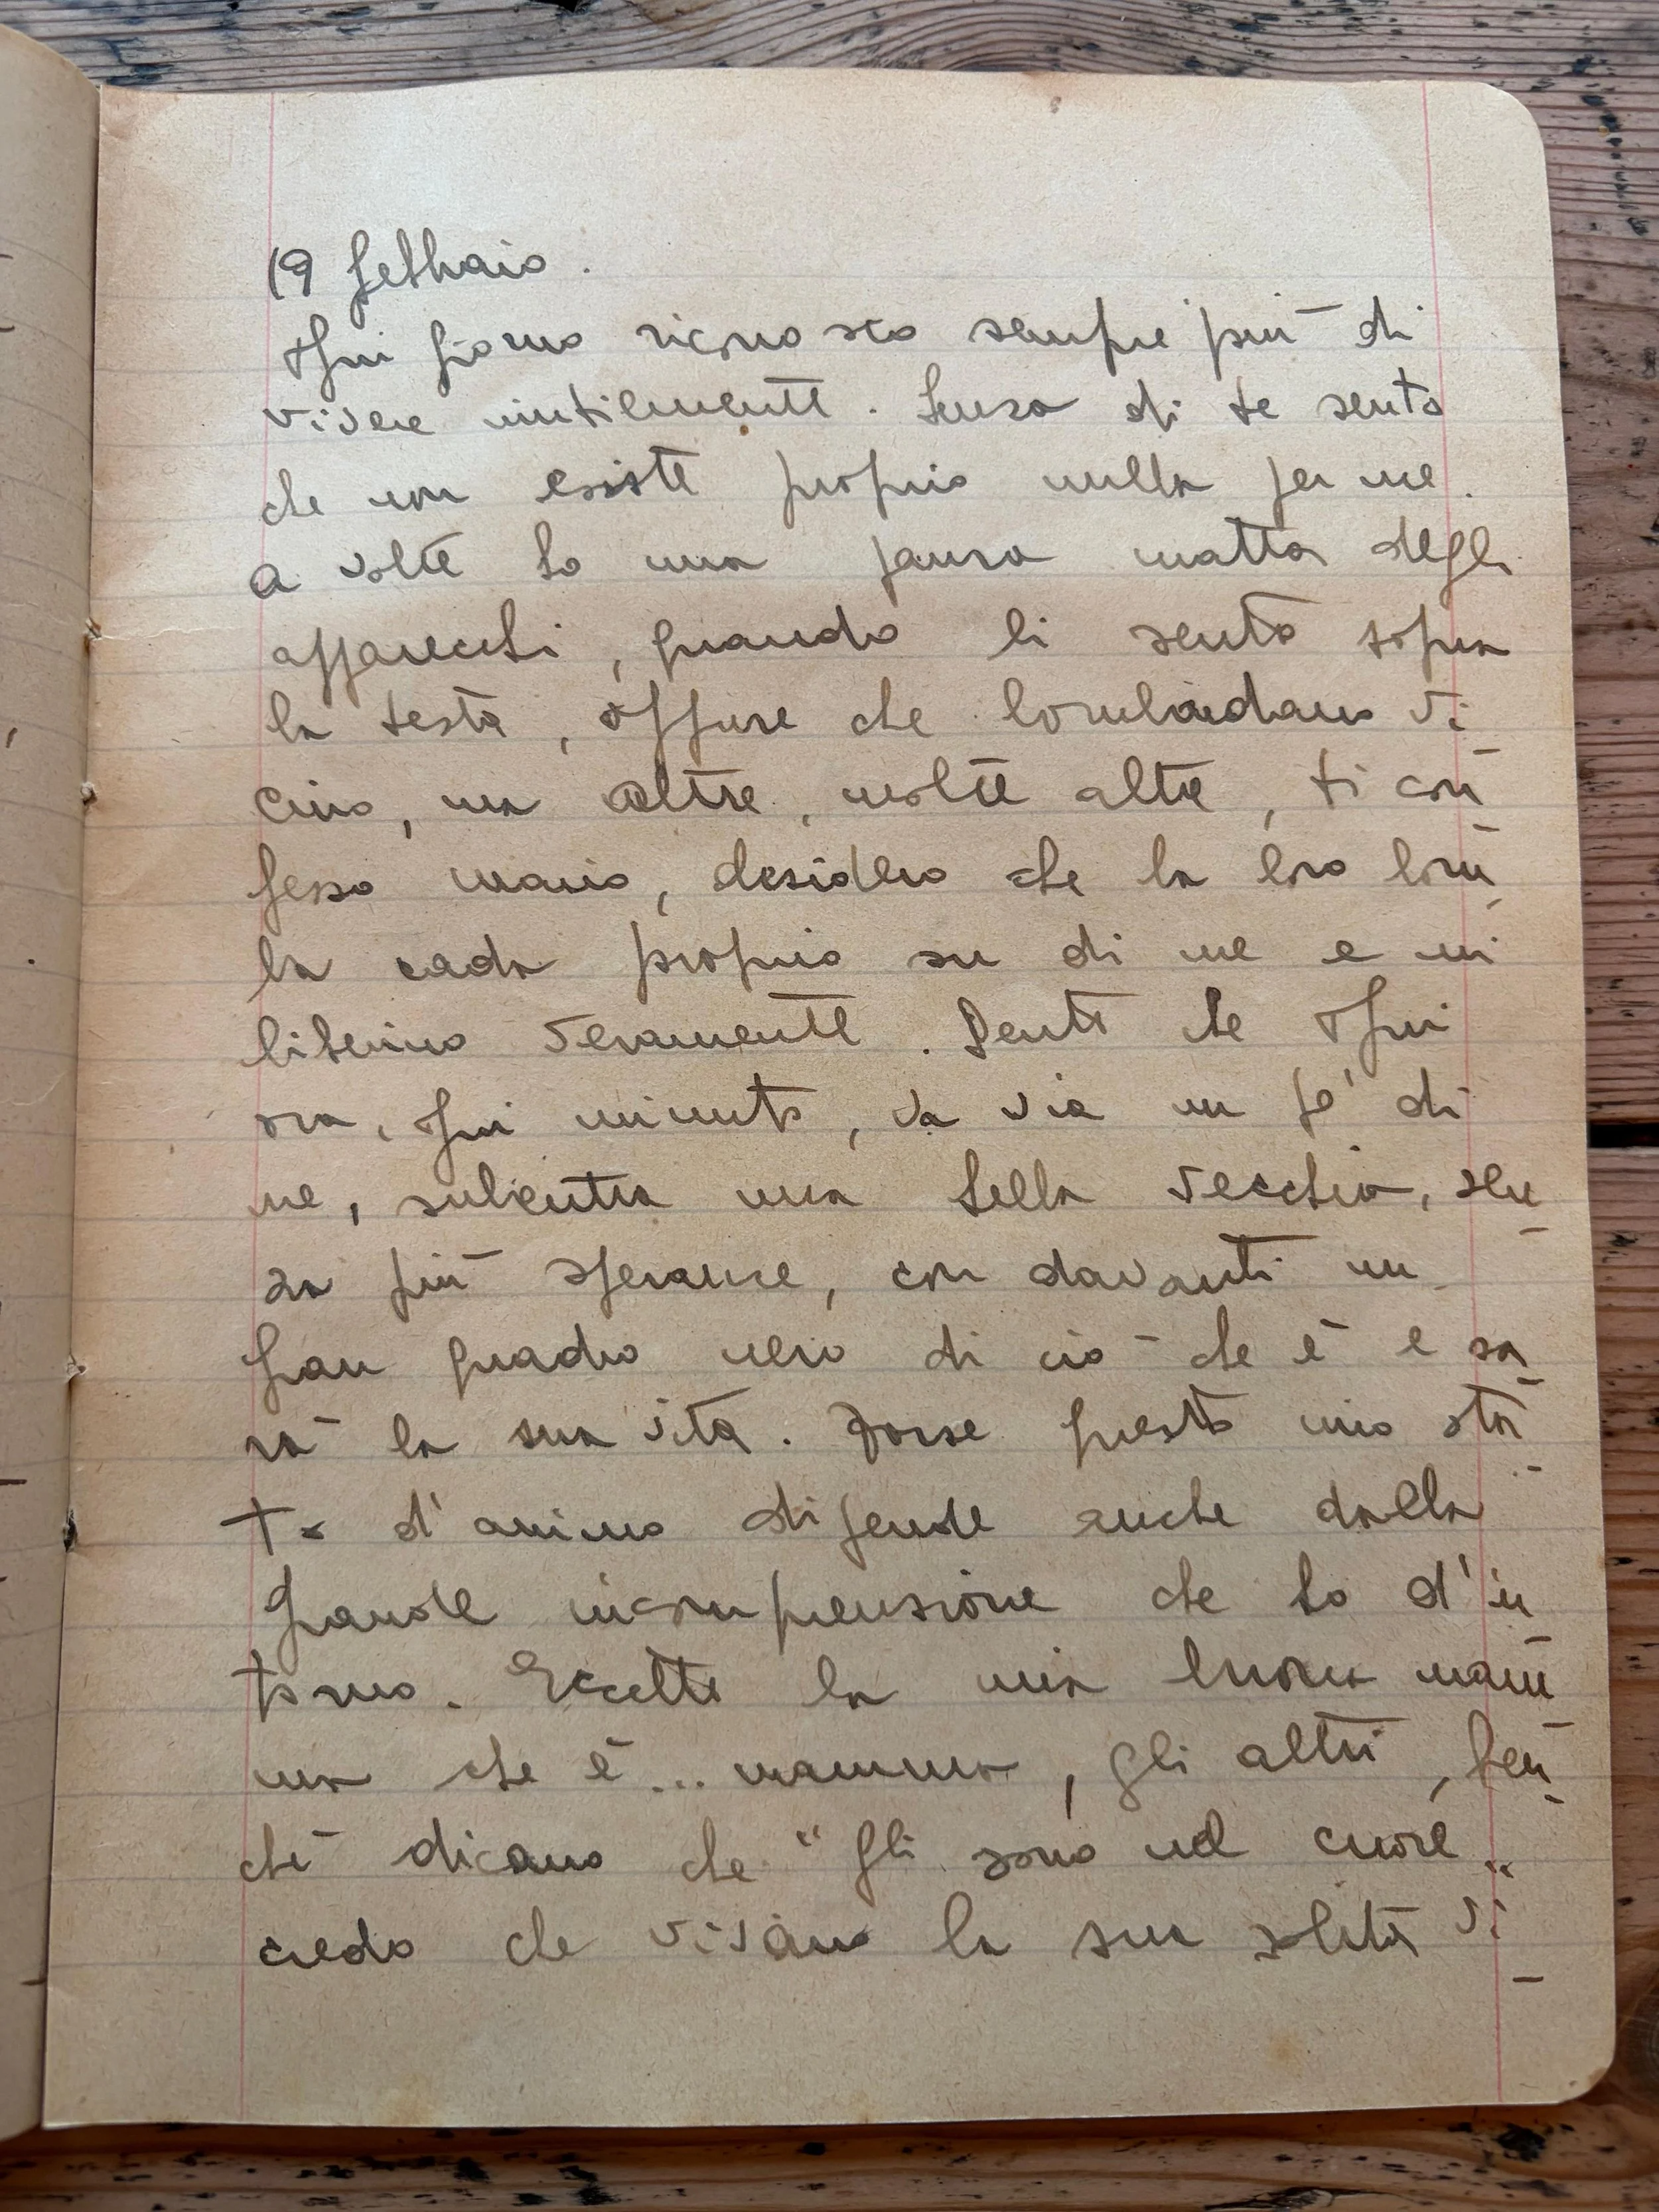 19 febbraio.
Ogni giorno riconosco sempre più di
vivere inutilmente. Senza di te sento
che non esiste proprio nulla per me.
A volte ho una paura matta degli
apparecchi, quando li sento sopra
la testa, oppure che bombardano vi
cino, ma altre, molte altre, ti con
fesso Mario, desidero che la loro bom
ba cada proprio su di me e mi
liberino veramente. Sento che ogni
ora, ogni minuto, va via un pò di
me, subentra una vecchia, sen
za più speranze, con davanti un
gran quadro nero di ciò che è e sa
rà la sua vita. Forse questo mio sta
to d'animo dipende anche dalla
grande incomprensione che ho d'in
torno. Eccetto la mia buona mam
ma che è... mamma, gli altri, ben
chè dicano che "gli sono nel cuore"
credo che vivano la sua solita vi-